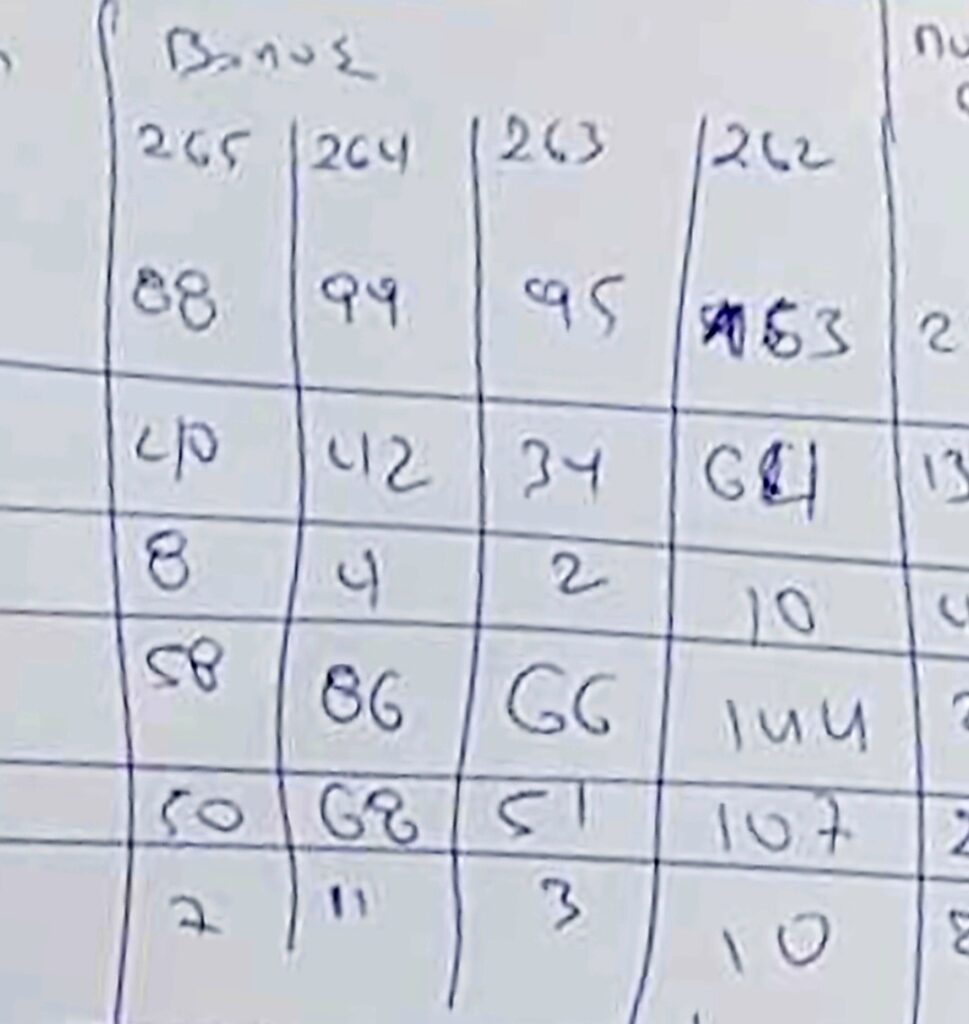 Bonus
265 264 263 262
88 99 95 153 2
40 42 34 64 13
8 4 2 10
58 86 66 144
50 68 51 107 2
7 11 3 10 8